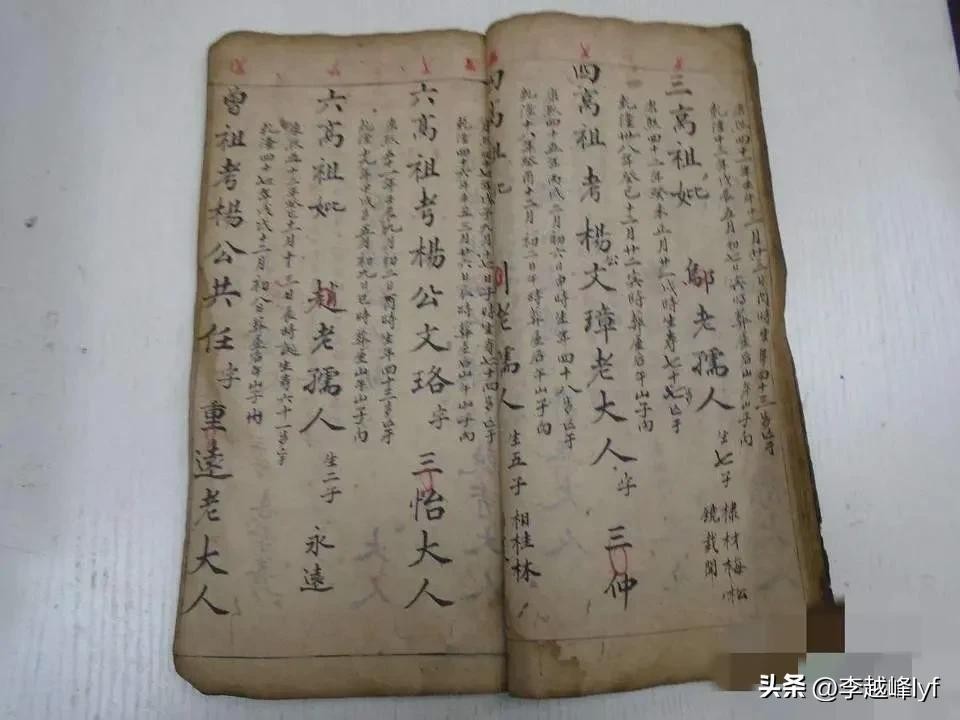 康熙四十一年壬午十二月廿三日丙時生年四十三歲亡于
乾隆十三年戊辰五月初七日寅時葬屋后山午山子向
三高祖妣 鄔老孺人 生七子 棣材梅松
鏡截開
康熙四十二年癸未正月廿八戌時生壽七十七亡于
乾隆卅八年癸巳十二月廿二寅時葬屋后午山子向
四高祖考楊公文璋老大人字 三仲
康熙四十五年丙戌二月初六日申時生年四十八歲亡于
乾隆十八年癸酉十二月初二日午時葬屋后午山子向
四高祖妣 劉老孺人 生五子 相桂林
乾隆四十六年辛丑三月廿六日辰時葬屋后山午山子向
六高祖考楊公文珞字 三怡大人
乾隆十九年甲戌五月初九日巳時葬屋山午山子向
六高祖妣 趙老孺人 生二子 永遠
康熙五十二年癸巳十一月十三日辰時誕生壽六十一歲亡于
乾隆四十七年戊戌十二月初八日葬屋后午山子向
曾祖考楊公共任字 重遠老大人
头条 @李越峰lyf